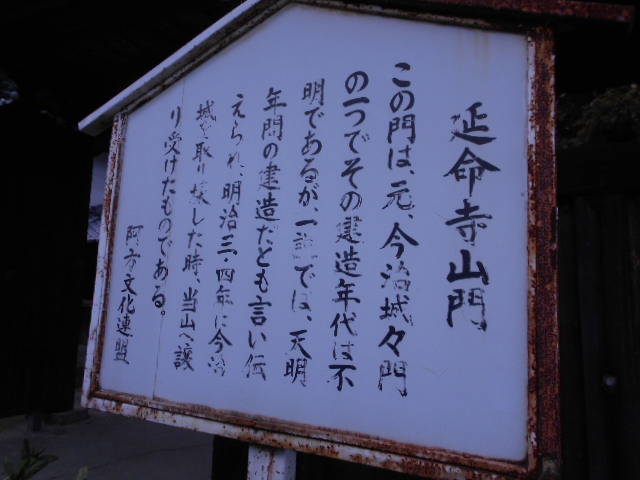 延命寺山門
この門は、元、今治城々門
の一つでその建造年代は不
明であるが、一説では、天明
年間の建造だとも言い伝
えられ、明治三・四年に今治
城を取り壊した時、当山へ譲
り受けたものである。
阿方文化連盟